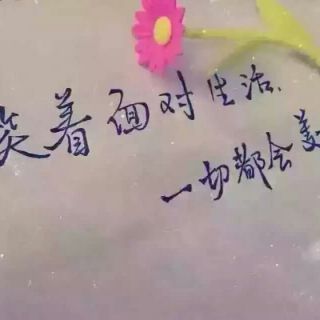 笑着面对生活、
一切都会美